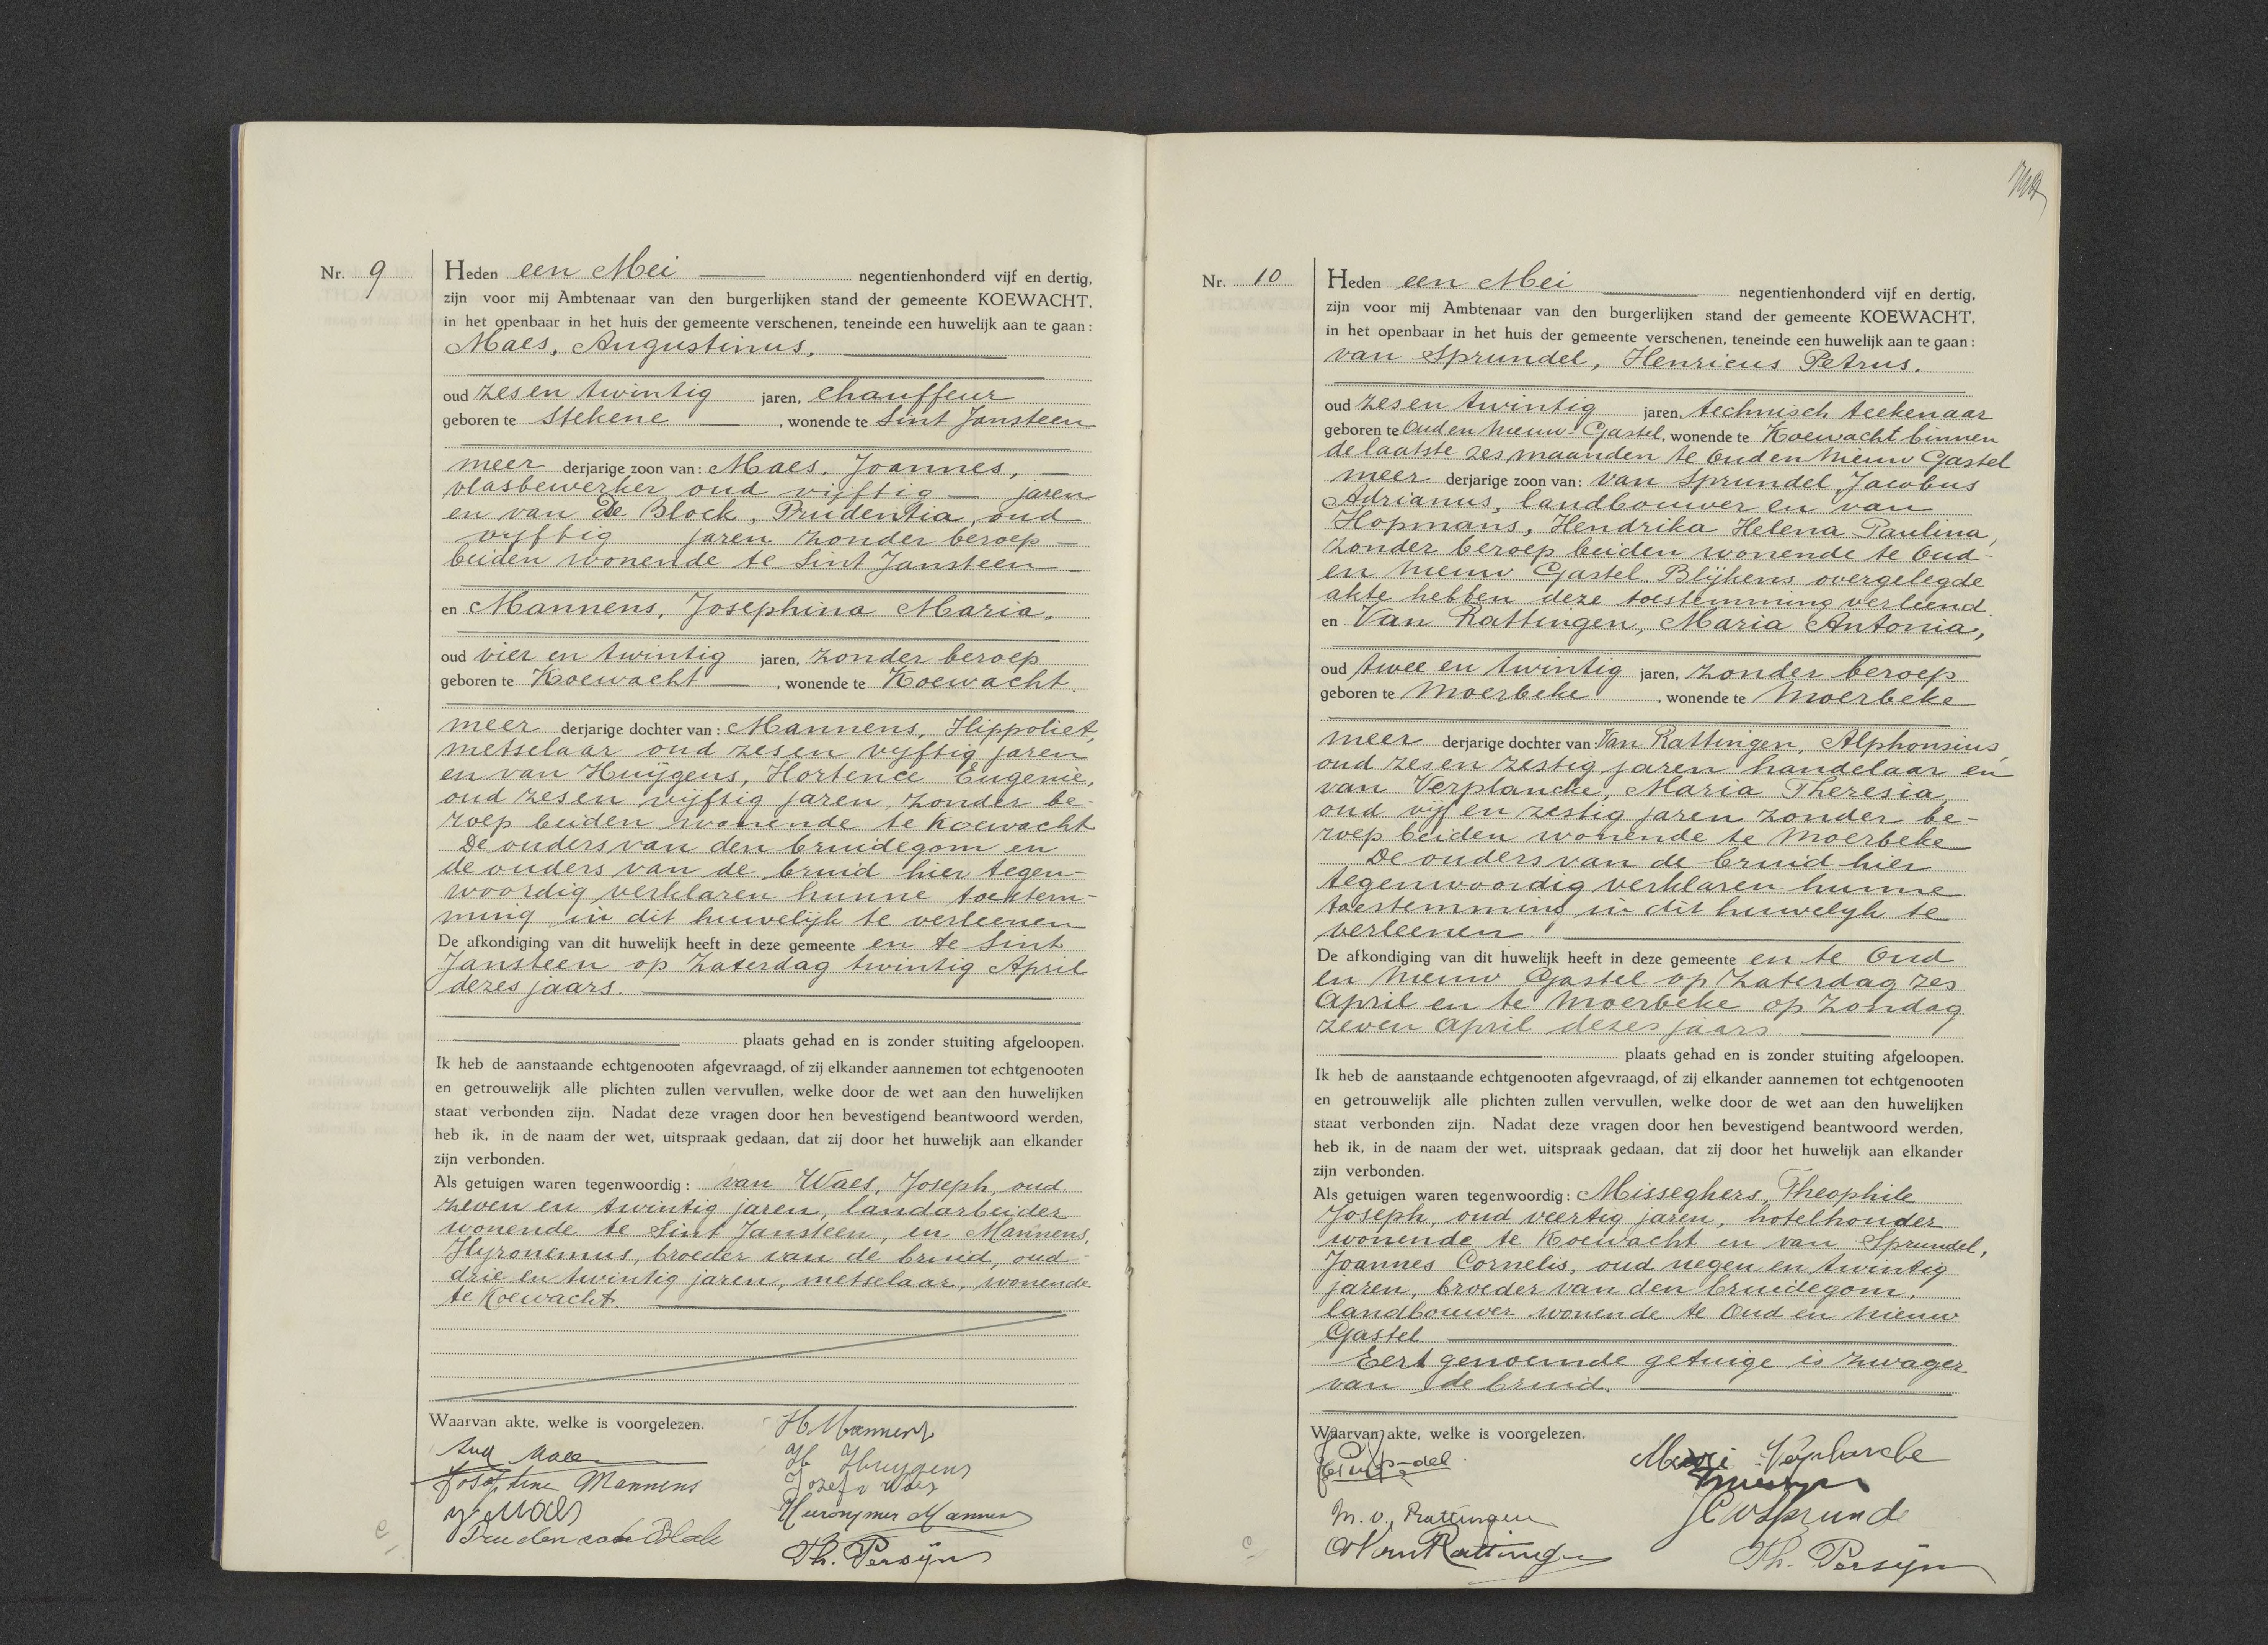 Nr. 9
Heden een Mei negentienhonderd vijf en dertig,
zijn voor mij Ambtenaar van den burgerlijken stand der gemeente KOEWACHT,
in het openbaar in het huis der gemeente verschenen, teneinde een huwelijk aan te gaan:
Maes, Augustinus.
oud zes en twintig jaren, chauffeur
geboren te Stekene, wonende te Sint Jansteen
meer derjarige zoon van: Maes, Joannes,
vlasbewerker oud vijftig jaren
en van De Block, Prudentia, oud
vijftig jaren zonder beroep
beiden wonende te Sint Jansteen
en Mannens, Josephina Maria.
oud vier en twintig jaren, zonder beroep
geboren te Koewacht, wonende te Koewacht
meer derjarige dochter van: Mannens, Hippoliet,
metselaar oud zes en vijftig jaren
en van Huijgens, Hortence Eugenie,
oud zes en vijftig jaren, zonder be-
roep beiden wonende te Koewacht
De ouders van den bruidegom en
de ouders van de bruid hier tegen-
woordig verklaren hunne toestem-
ming in dit huwelijk te verleenen
De afkondiging van dit huwelijk heeft in deze gemeente en te Sint
Jansteen op Zaterdag twintig April
dezes jaars.
plaats gehad en is zonder stuiting afgeloopen.
Ik heb de aanstaande echtgenooten afgevraagd, of zij elkander aannemen tot echtgenooten
en getrouwelijk alle plichten zullen vervullen, welke door de wet aan den huwelijken
staat verbonden zijn. Nadat deze vragen door hen bevestigend beantwoord werden,
heb ik, in de naam der wet, uitspraak gedaan, dat zij door het huwelijk aan elkander
zijn verbonden.
Als getuigen waren tegenwoordig: van Waes, Joseph, oud
zeven en twintig jaren, landarbeider
wonende te Sint Jansteen, en Mannens,
Hyronemus, broeder van de bruid, oud
drie en twintig jaren, metselaar, wonende
te Koewacht.
Waarvan akte, welke is voorgelezen.
H Mannens
Aug Maes
H Huygens
Josephine Mannens
Jozef v Waes
J. Maes
Hieronymus Mannens
Prudenca de Block
Th. Persijn
Nr. 10
Heden een Mei negentienhonderd vijf en dertig,
zijn voor mij Ambtenaar van den burgerlijken stand der gemeente KOEWACHT,
in het openbaar in het huis der gemeente verschenen, teneinde een huwelijk aan te gaan:
van Sprundel, Henricus Petrus.
oud zes en twintig jaren, technisch teekenaar
geboren te Oud en Nieuw Gastel, wonende te Koewacht binnen
de laatste zes maanden te Oud en Nieuw Gastel
meer derjarige zoon van: van Sprundel, Jacobus
Adrianus, landbouwer en van
Hopmans, Hendrika Helena Paulina,
zonder beroep beiden wonende te Oud-
en Nieuw Gastel. Blijkens overgelegde
akte hebben deze toestemming verleend.
en Van Rattingen, Maria Antonia,
oud twee en twintig jaren, zonder beroep
geboren te Moerbeke, wonende te Moerbeke
meer derjarige dochter van: Van Rattingen, Alphonsius,
oud zes en zestig jaren handelaar en
van Verplancke, Maria Theresia,
oud vijf en zestig jaren zonder be-
roep beiden wonende te Moerbeke
De ouders van de bruid hier
tegenwoordig verklaren hunne
toestemming in dit huwelyk te
verleenen
De afkondiging van dit huwelijk heeft in deze gemeente en te Oud
en Nieuw Gastel op Zaterdag zes
April en te Moerbeke op Zondag
zeven April dezes jaars
plaats gehad en is zonder stuiting afgeloopen.
Ik heb de aanstaande echtgenooten afgevraagd, of zij elkander aannemen tot echtgenooten
en getrouwelijk alle plichten zullen vervullen, welke door de wet aan den huwelijken
staat verbonden zijn. Nadat deze vragen door hen bevestigend beantwoord werden,
heb ik, in de naam der wet, uitspraak gedaan, dat zij door het huwelijk aan elkander
zijn verbonden.
Als getuigen waren tegenwoordig: Misseghers, Theophile
Joseph, oud veertig jaren, hotelhouder
wonende te Koewacht en van Sprundel,
Joannes Cornelis, oud negen en twintig
jaren, broeder van den bruidegom,
landbouwer wonende te Oud en Nieuw
Gastel
Eerst genoemde getuige is zwager
van de bruid.
Waarvan akte, welke is voorgelezen.
M. v. Rattingen
A Van Rattingen
Th. Persijn